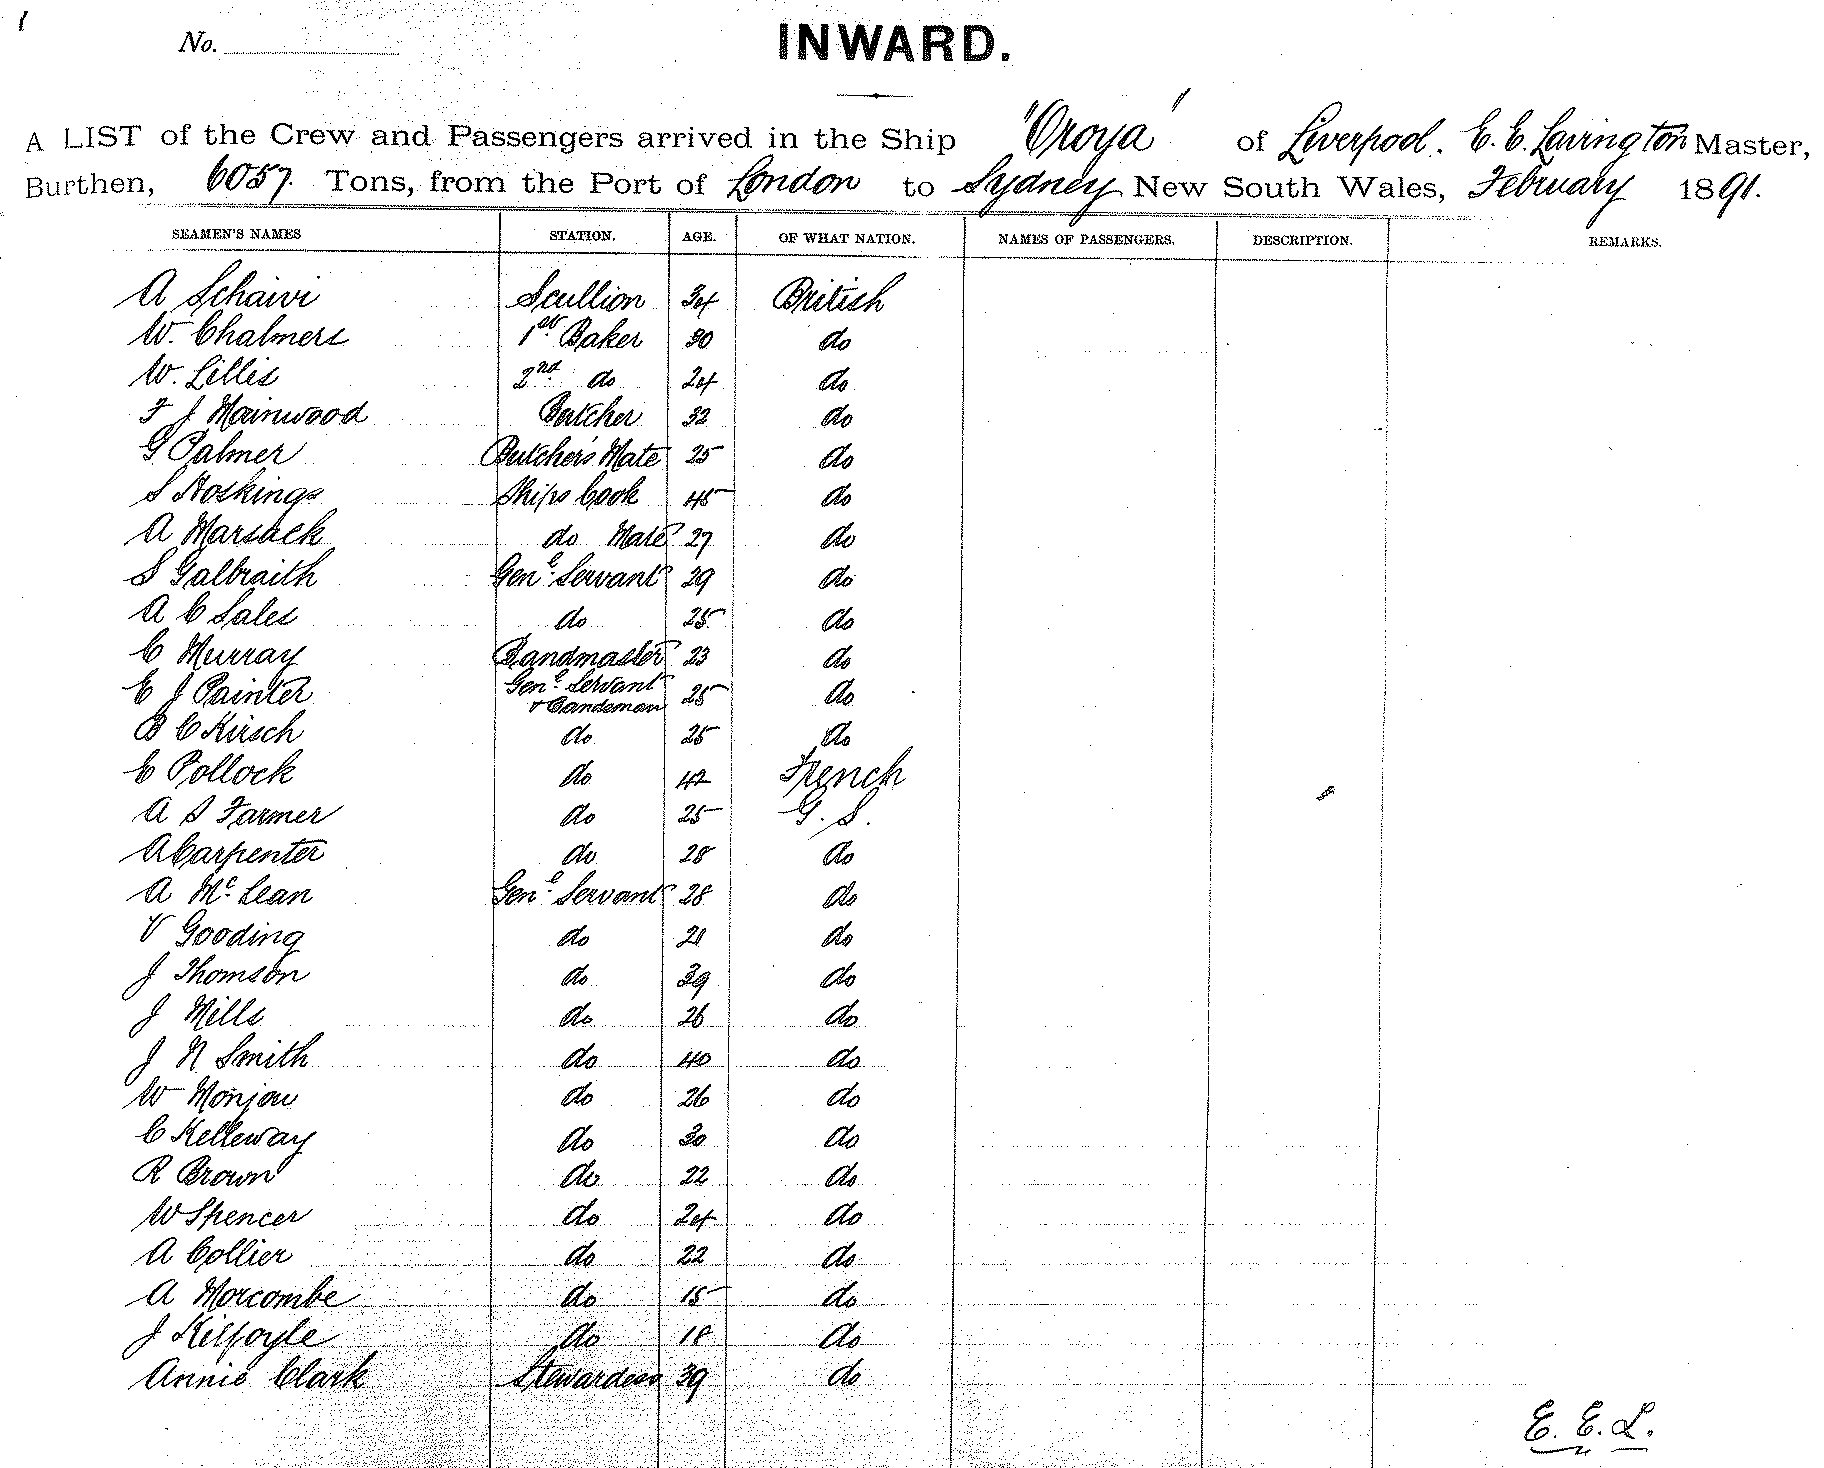 No.
INWARD.
A LIST of the Crew and Passengers arrived in the Ship "Oroya" of Liverpool. E. E. Lavington Master,
Burthen, 6057. Tons, from the Port of London to Sydney New South Wales, February 1891.
SEAMEN'S NAMES STATION. AGE. OF WHAT NATION. NAMES OF PASSENGERS. DESCRIPTION. REMARKS.
A Schaivi Scullion 34 British
W. Chalmers 1st Baker 30 do
W. Lillis 2nd do 24 do
F J Mainwood Butcher 32 do
G Palmer Butcher's Mate 25 do
S Hoskings Ships Cook 45 do
A Marsack do Mate 27 do
S Galbraith Genl. Servant 29 do
A C Sales do 25 do
C Murray Bandmaster 23 do
E J Painter Genl. Servant & Bandsman 25 do
B C Kirsch do 25 do
E Pollock do 42 French
A S Farmer do 25 G. S.
A Carpenter do 28 do
A Mc. Lean Genl. Servant 28 do
V Gooding do 21 do
J Thomson do 39 do
J Mills do 26 do
J N Smith do 40 do
W Monjou do 26 do
C Kelleway do 30 do
R Brown do 22 do
W Spencer do 24 do
A Collier do 22 do
A Morcombe do 15 do
J Kilfoyle do 18 do
Annie Clark Stewardess 39 do
E. E. L.